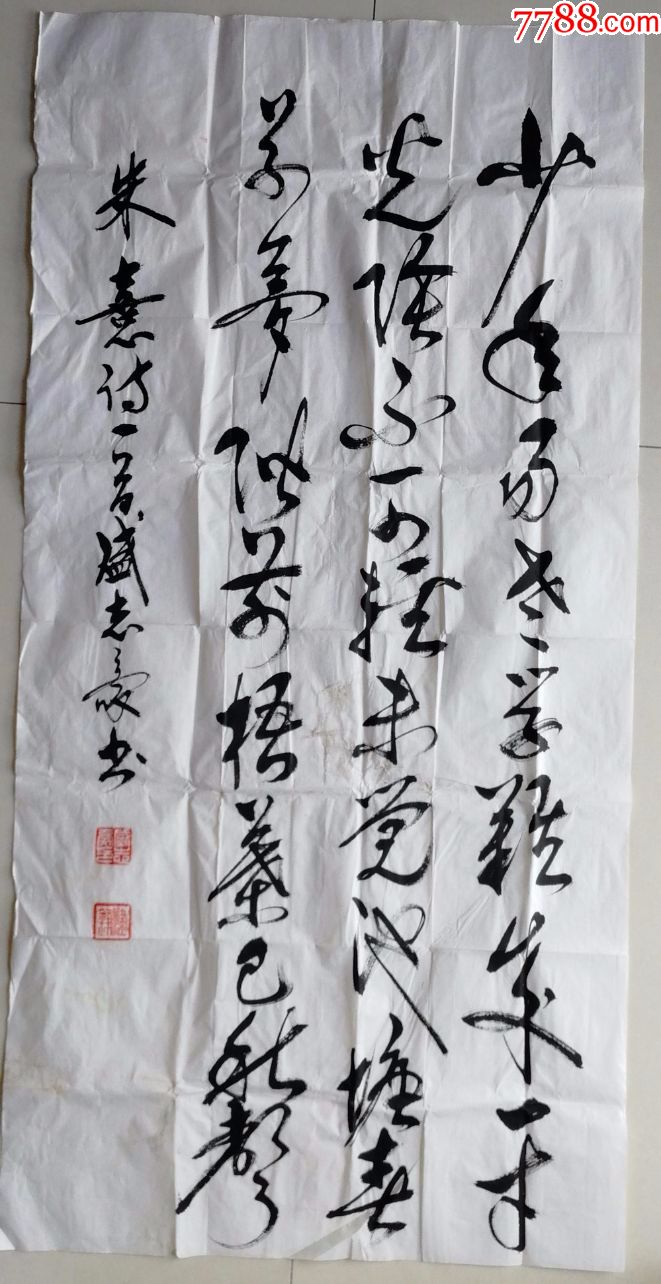 7788.com
少年易老学難成一寸
光陰不可輕未觉池塘春
草夢階前梧葉已秋聲
朱熹诗一首盛志豪书